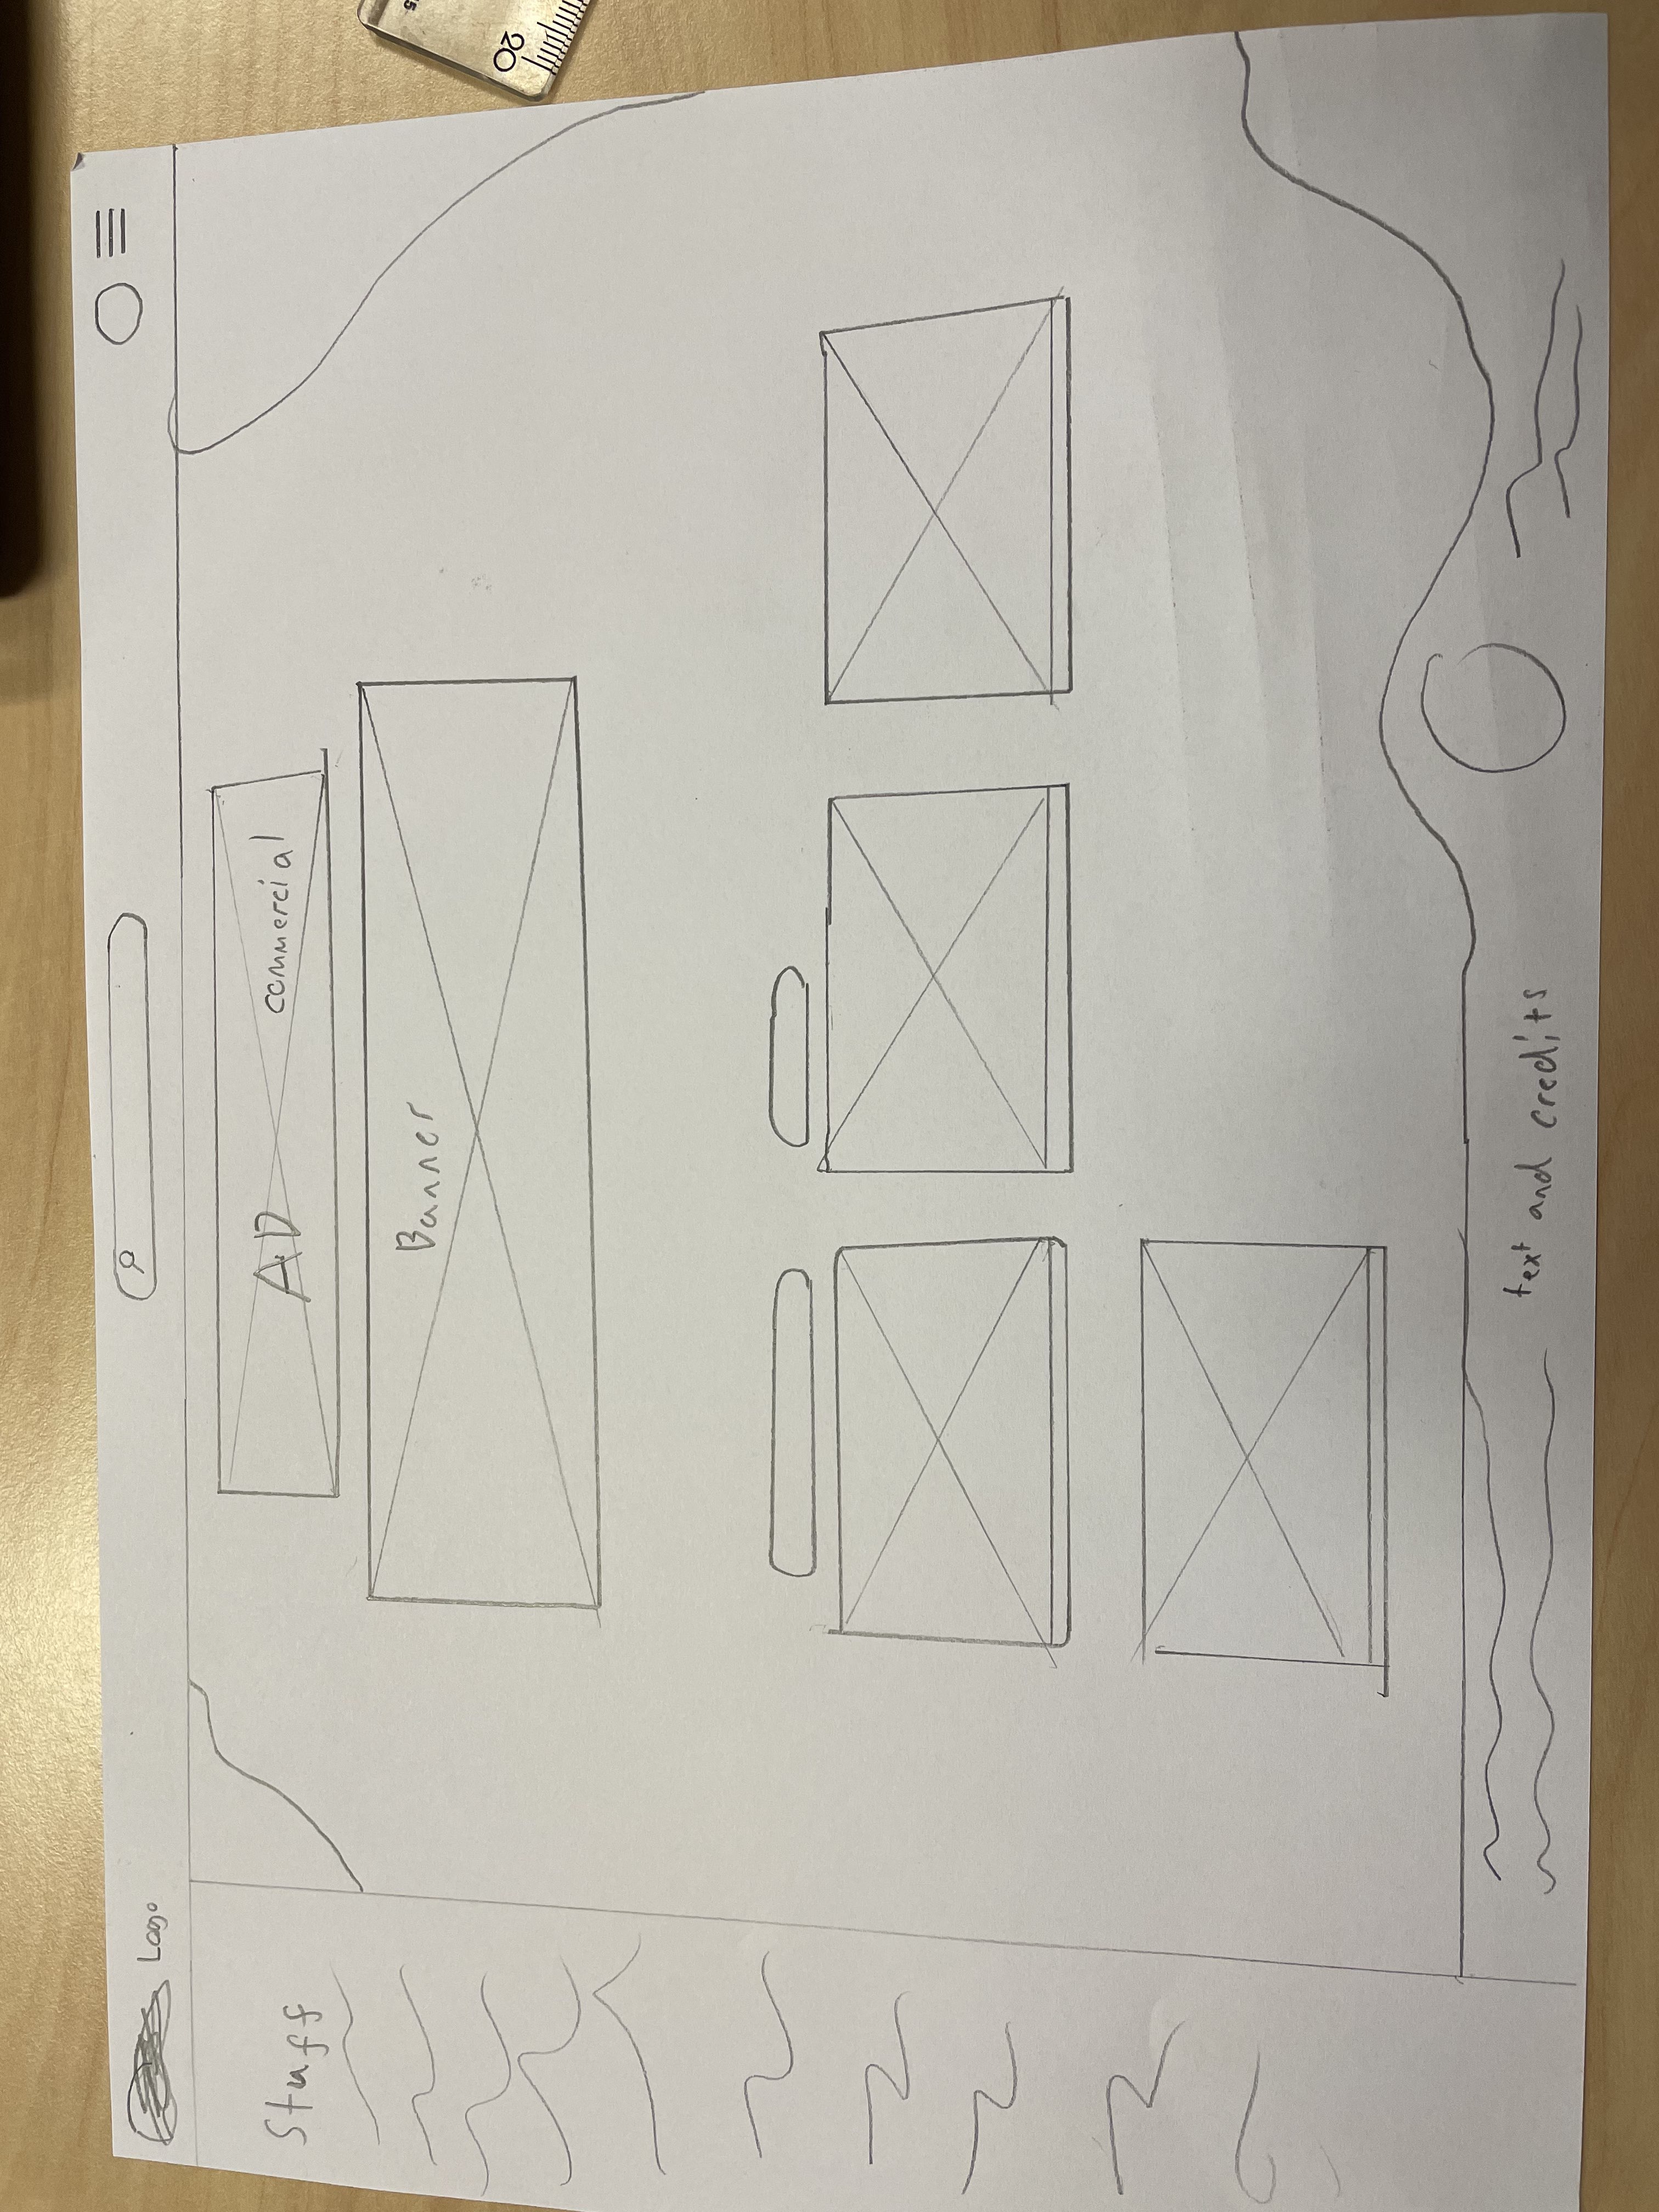 Logo
Stuff
AD commercial
Banner
text and credits
20
5